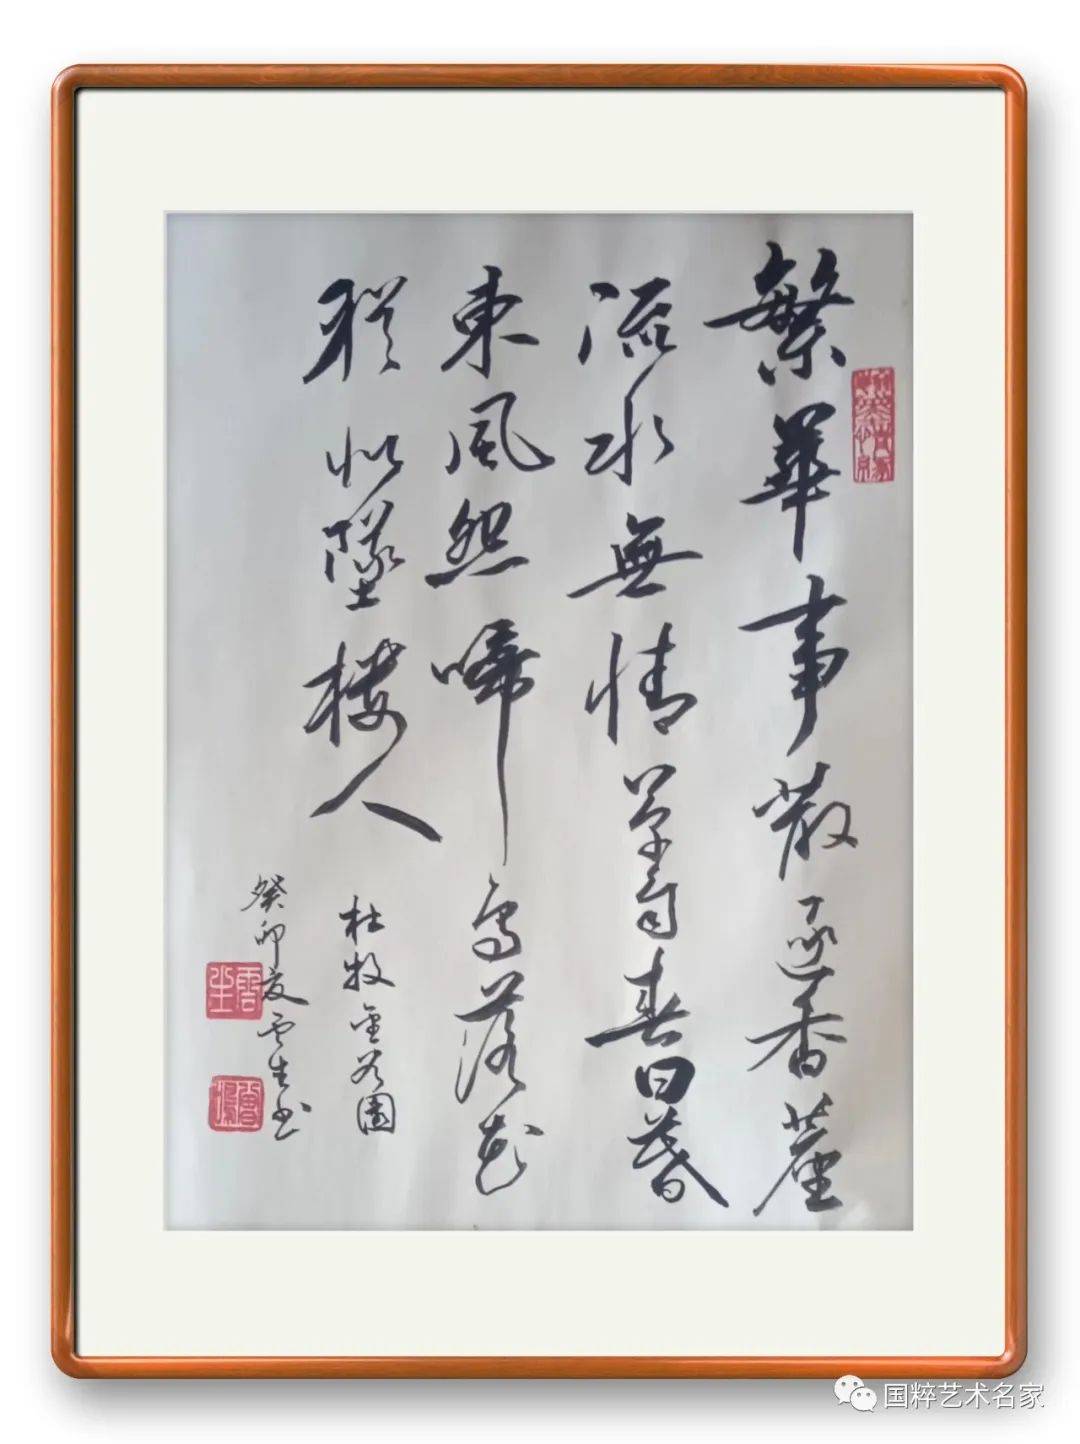 繁華事散逐香塵
流水無情草自春日暮
東風怨啼鳥落花
猶似墜樓人
杜牧金谷園
癸卯夏云生书
雲生
国粹艺术名家